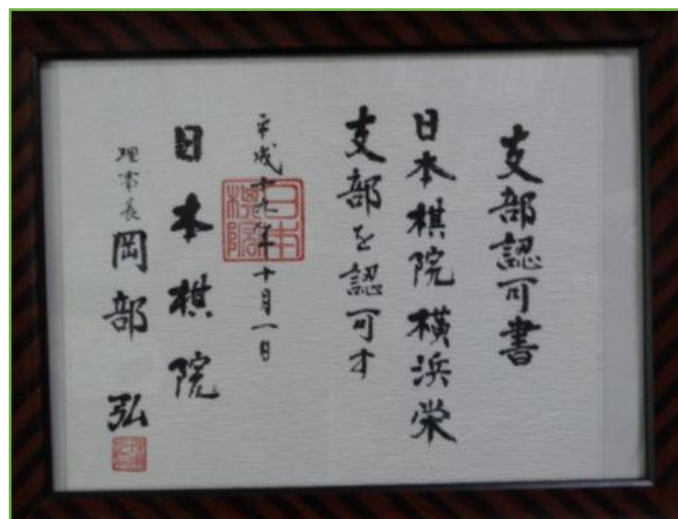 支部認可書
日本棋院横浜栄
支部を認可す
平成十七年十月一日
日本棋院
日本棋院
理事長 岡部 弘